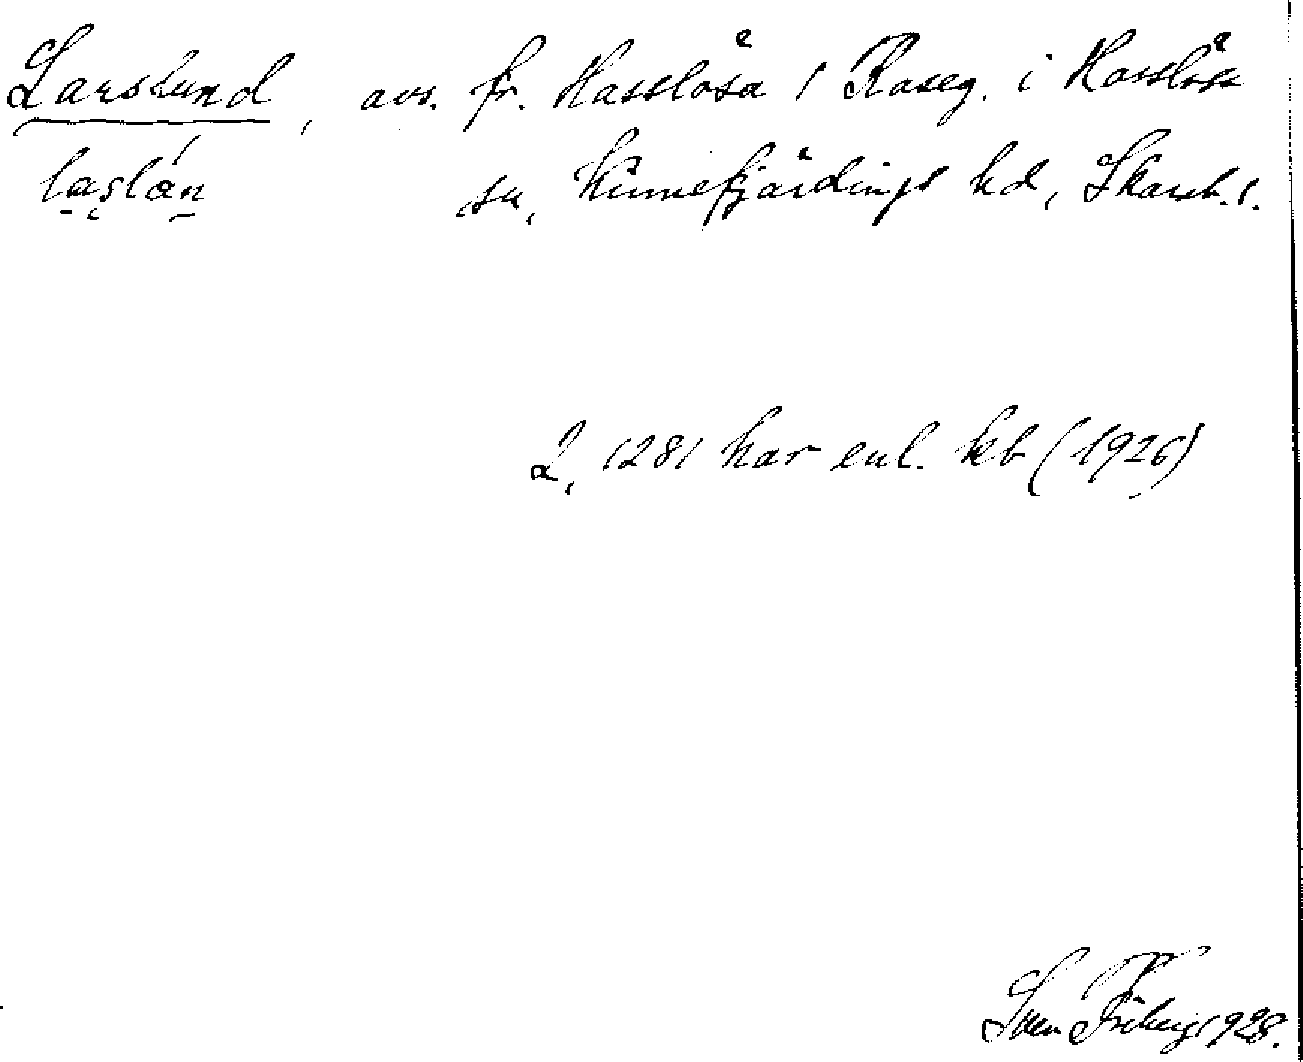 Larslund, avs. fr. Hasslösa 1 Raseg. i Hasslösa
laslan sn, Kinnefjärdings hd, Skarab. l.
2, 1281 har enl. kb (1926)
Sven Friberg 1928.